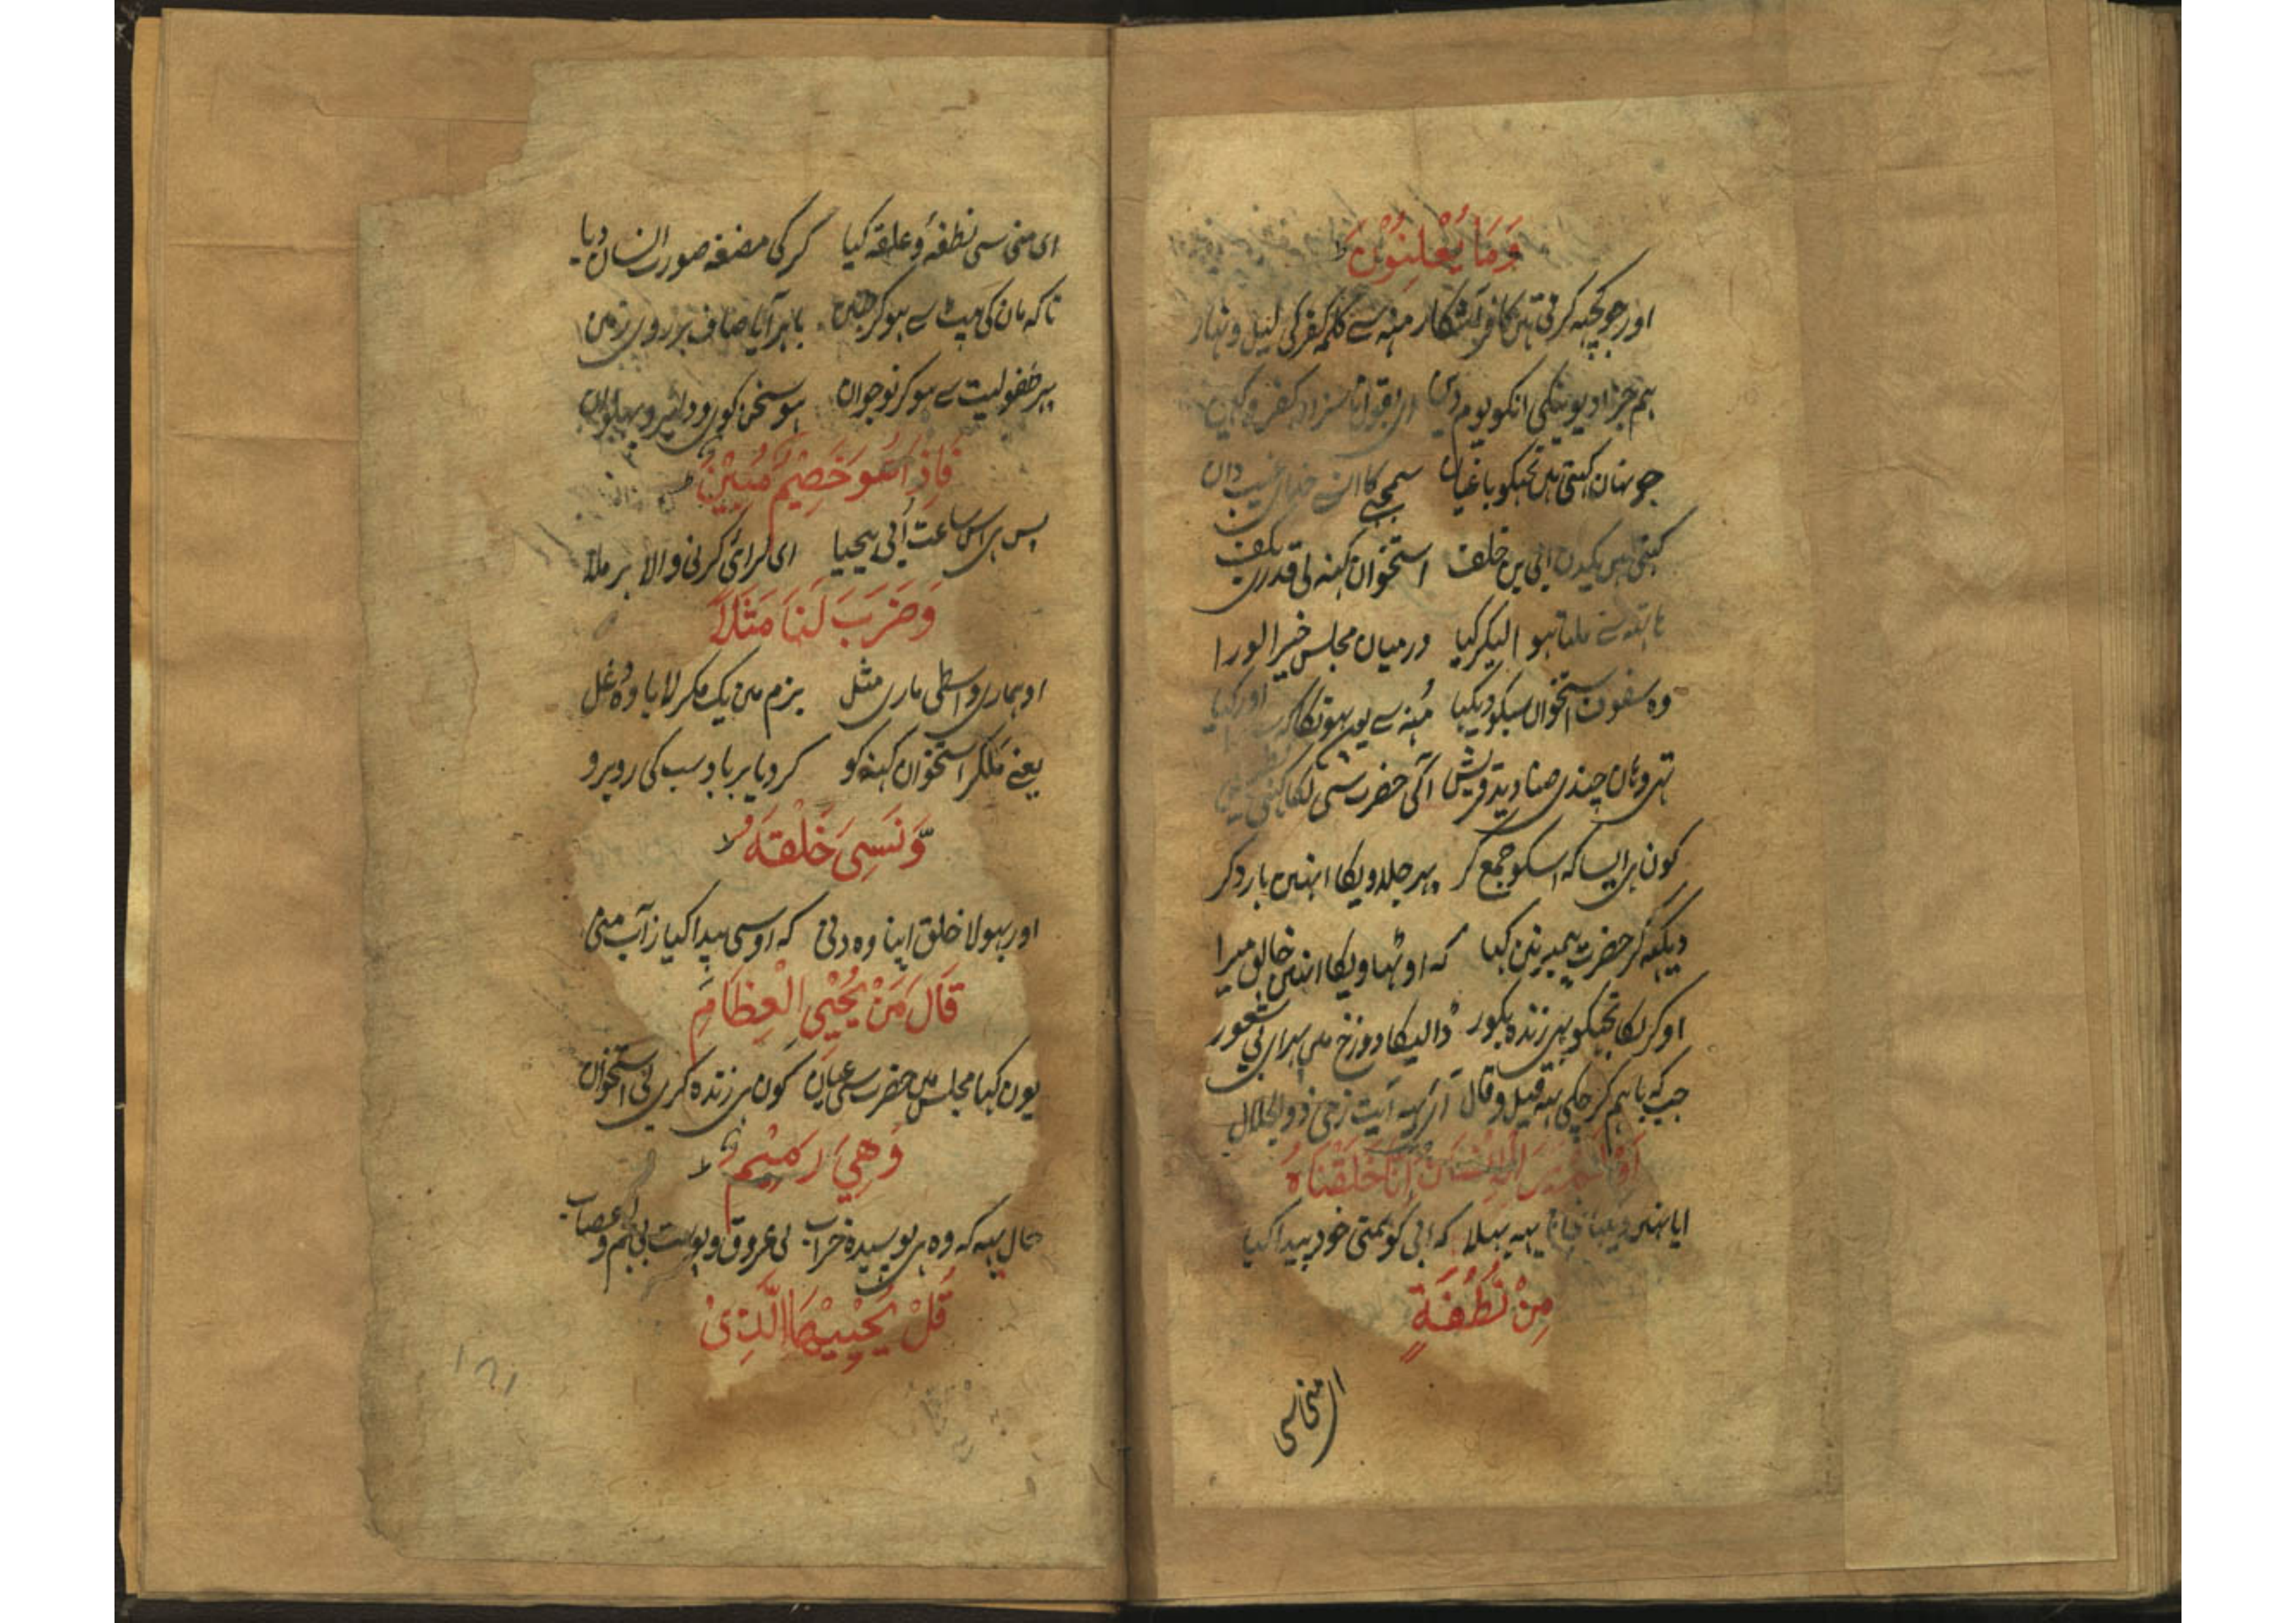 وَمَا يُعْلِنُوْنَ ط
اور جو کچہہ کرتی ہیں کافر آشکار منہہ سے کلمہ کفر کی لیل و نہار
ہم جزا دیوینگی انکو یوم دین
جو نہان کہتی ہیں تجہکو باغیان سمجہی کا انسے خدای غیب دان
کہتی ہیں یکدن ابی بن خلف استخوان کہنہ لی قدری بکف
ہاتہہ سے ملتا ہوا لیکر گیا درمیان مجلس خیر الورا
وہ سفوف استخوان سبکو دیکہا مُنہ سے یون پہونکا
تہی وہان چندی صنادید قریش آگی حضرت سی لگا کہنی
کون ہی ایسا کہ اسکو جمع کر پہر جلدویکا انہین بار دکر
دیکہہ کر حضرت پیمبر نین کہا کہ اوٹہاویکا انہین خالق میرا
اوکرلکا تجہکو بہی زندہ بکور ڈالیکا دوزخ مین پہر ای بی شعور
جب کہ باہم کرچکی یہہ قیل و قال آئی یہہ آیت زحی ذو الجلال
اَوَلَمْ يَرَ الْاِنْسَانُ اَنَّا خَلَقْنَاهُ
ایا نہین دیکہا یہہ بہلا کہ اپی کو ہمتی خود پیدا کیا
مِنْ نُطْفَةٍ
ای منی سی
ای منی سی نطفہ و علقہ کیا کر کی مضغہ صورت انسان دیا
تا کہ مان کی پیٹ سے ہو کر جنین باہر آیا صاف بر روی زمین
پہر طفولیت سے ہو کر نوجوان ہو سخن کوی و دلیر و پہلوان
فَاِذَا هُوَ خَصِيْمٌ مُبِيْنٌ
پس ہی اس ساعت اُبی بیحیا ای لرائی کرنی والا بر ملا
وَضَرَبَ لَنَا مَثَلًا
او ہماری واسطی ماری مثل بزم مین یک مکر لایا وہ دغل
یعنے ملکر استخوان کہنہ کو کر دیا برباد سب کی روبرو
وَّنَسِيَ خَلْقَهٗ ط
اور بہولا خلق اپنا وہ دنی کہ اوسی پیدا کیا ز آب منی
قَالَ مَنْ يُحْيِي الْعِظَامَ
یون کہا مجلس مین حضرت سی عیان کون ہی زندہ کری لی استخوان
وَهِيَ رَمِيْمٌ ط
حال یہہ کہ وہ ہی بوسیدہ خراب لی عروق و پوست بی لحم و عصاب
قُلْ يُحْيِيْهَا الَّذِيْ
۱۲۱